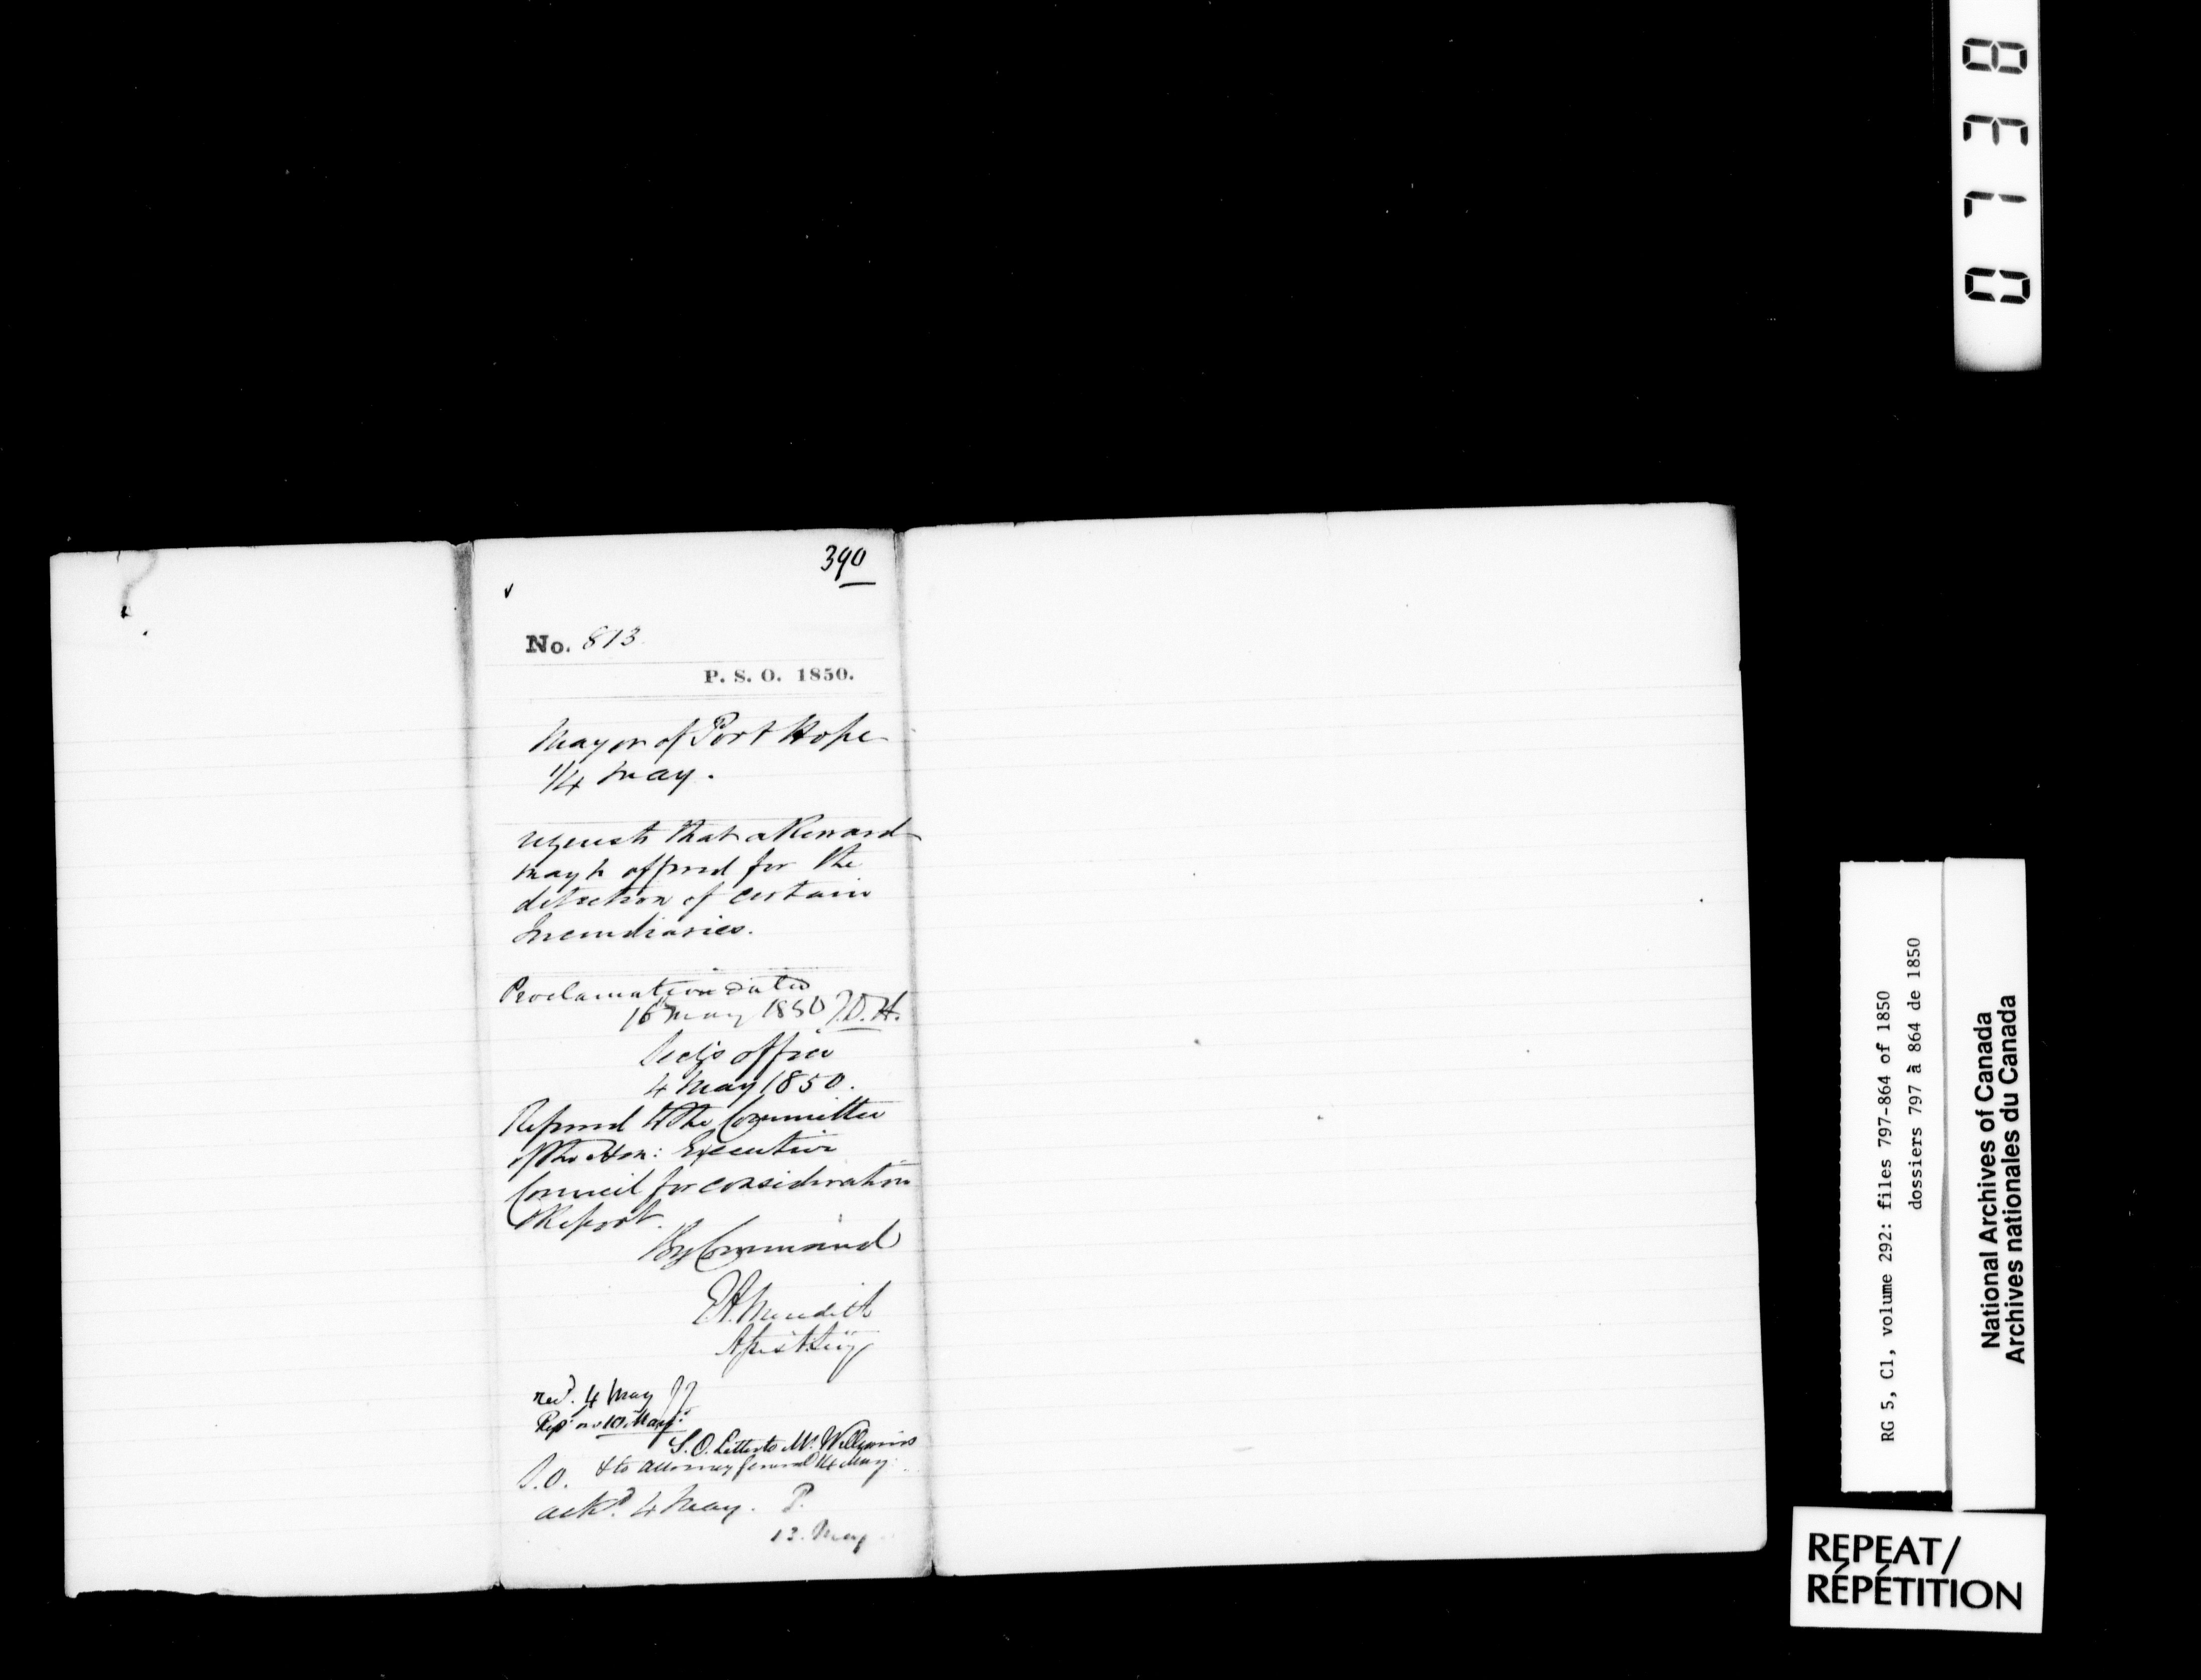 390
No. 813
P. S. O. 1850.
Mayor of Port Hope
1/4 May.
requests that a Reward
may be offered for the
detection of certain
Incendiaries.
Proclamation dated
16 May 1850 J.D.H.
Secy's office
4 May 1850.
Referred to the Committee
of the Hon: Executive
Council for consideration
& Report.
By Command
E.A. Meredith
Assist. Secy
recd. 4 May JJ
Repd on 10 May
S.O. Letter to Mr. Williams
& to Attorney General 14 May
S.O.
ackd. 4 May. P.
13. May
0738
RG 5, C1, volume 292: files 797-864 of 1850
dossiers 797 à 864 de 1850
National Archives of Canada
Archives nationales du Canada
REPEAT/
RÉPÉTITION